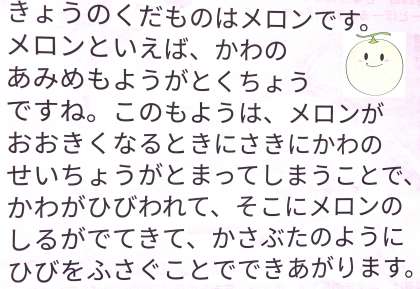 きょうのくだものはメロンです。
メロンといえば、かわの
あみめもようがとくちょう
ですね。このもようは、メロンが
おおきくなるときにさきにかわの
せいちょうがとまってしまうことで、
かわがひびわれて、そこにメロンの
しるがでてきて、かさぶたのように
ひびをふさぐことでできあがります。